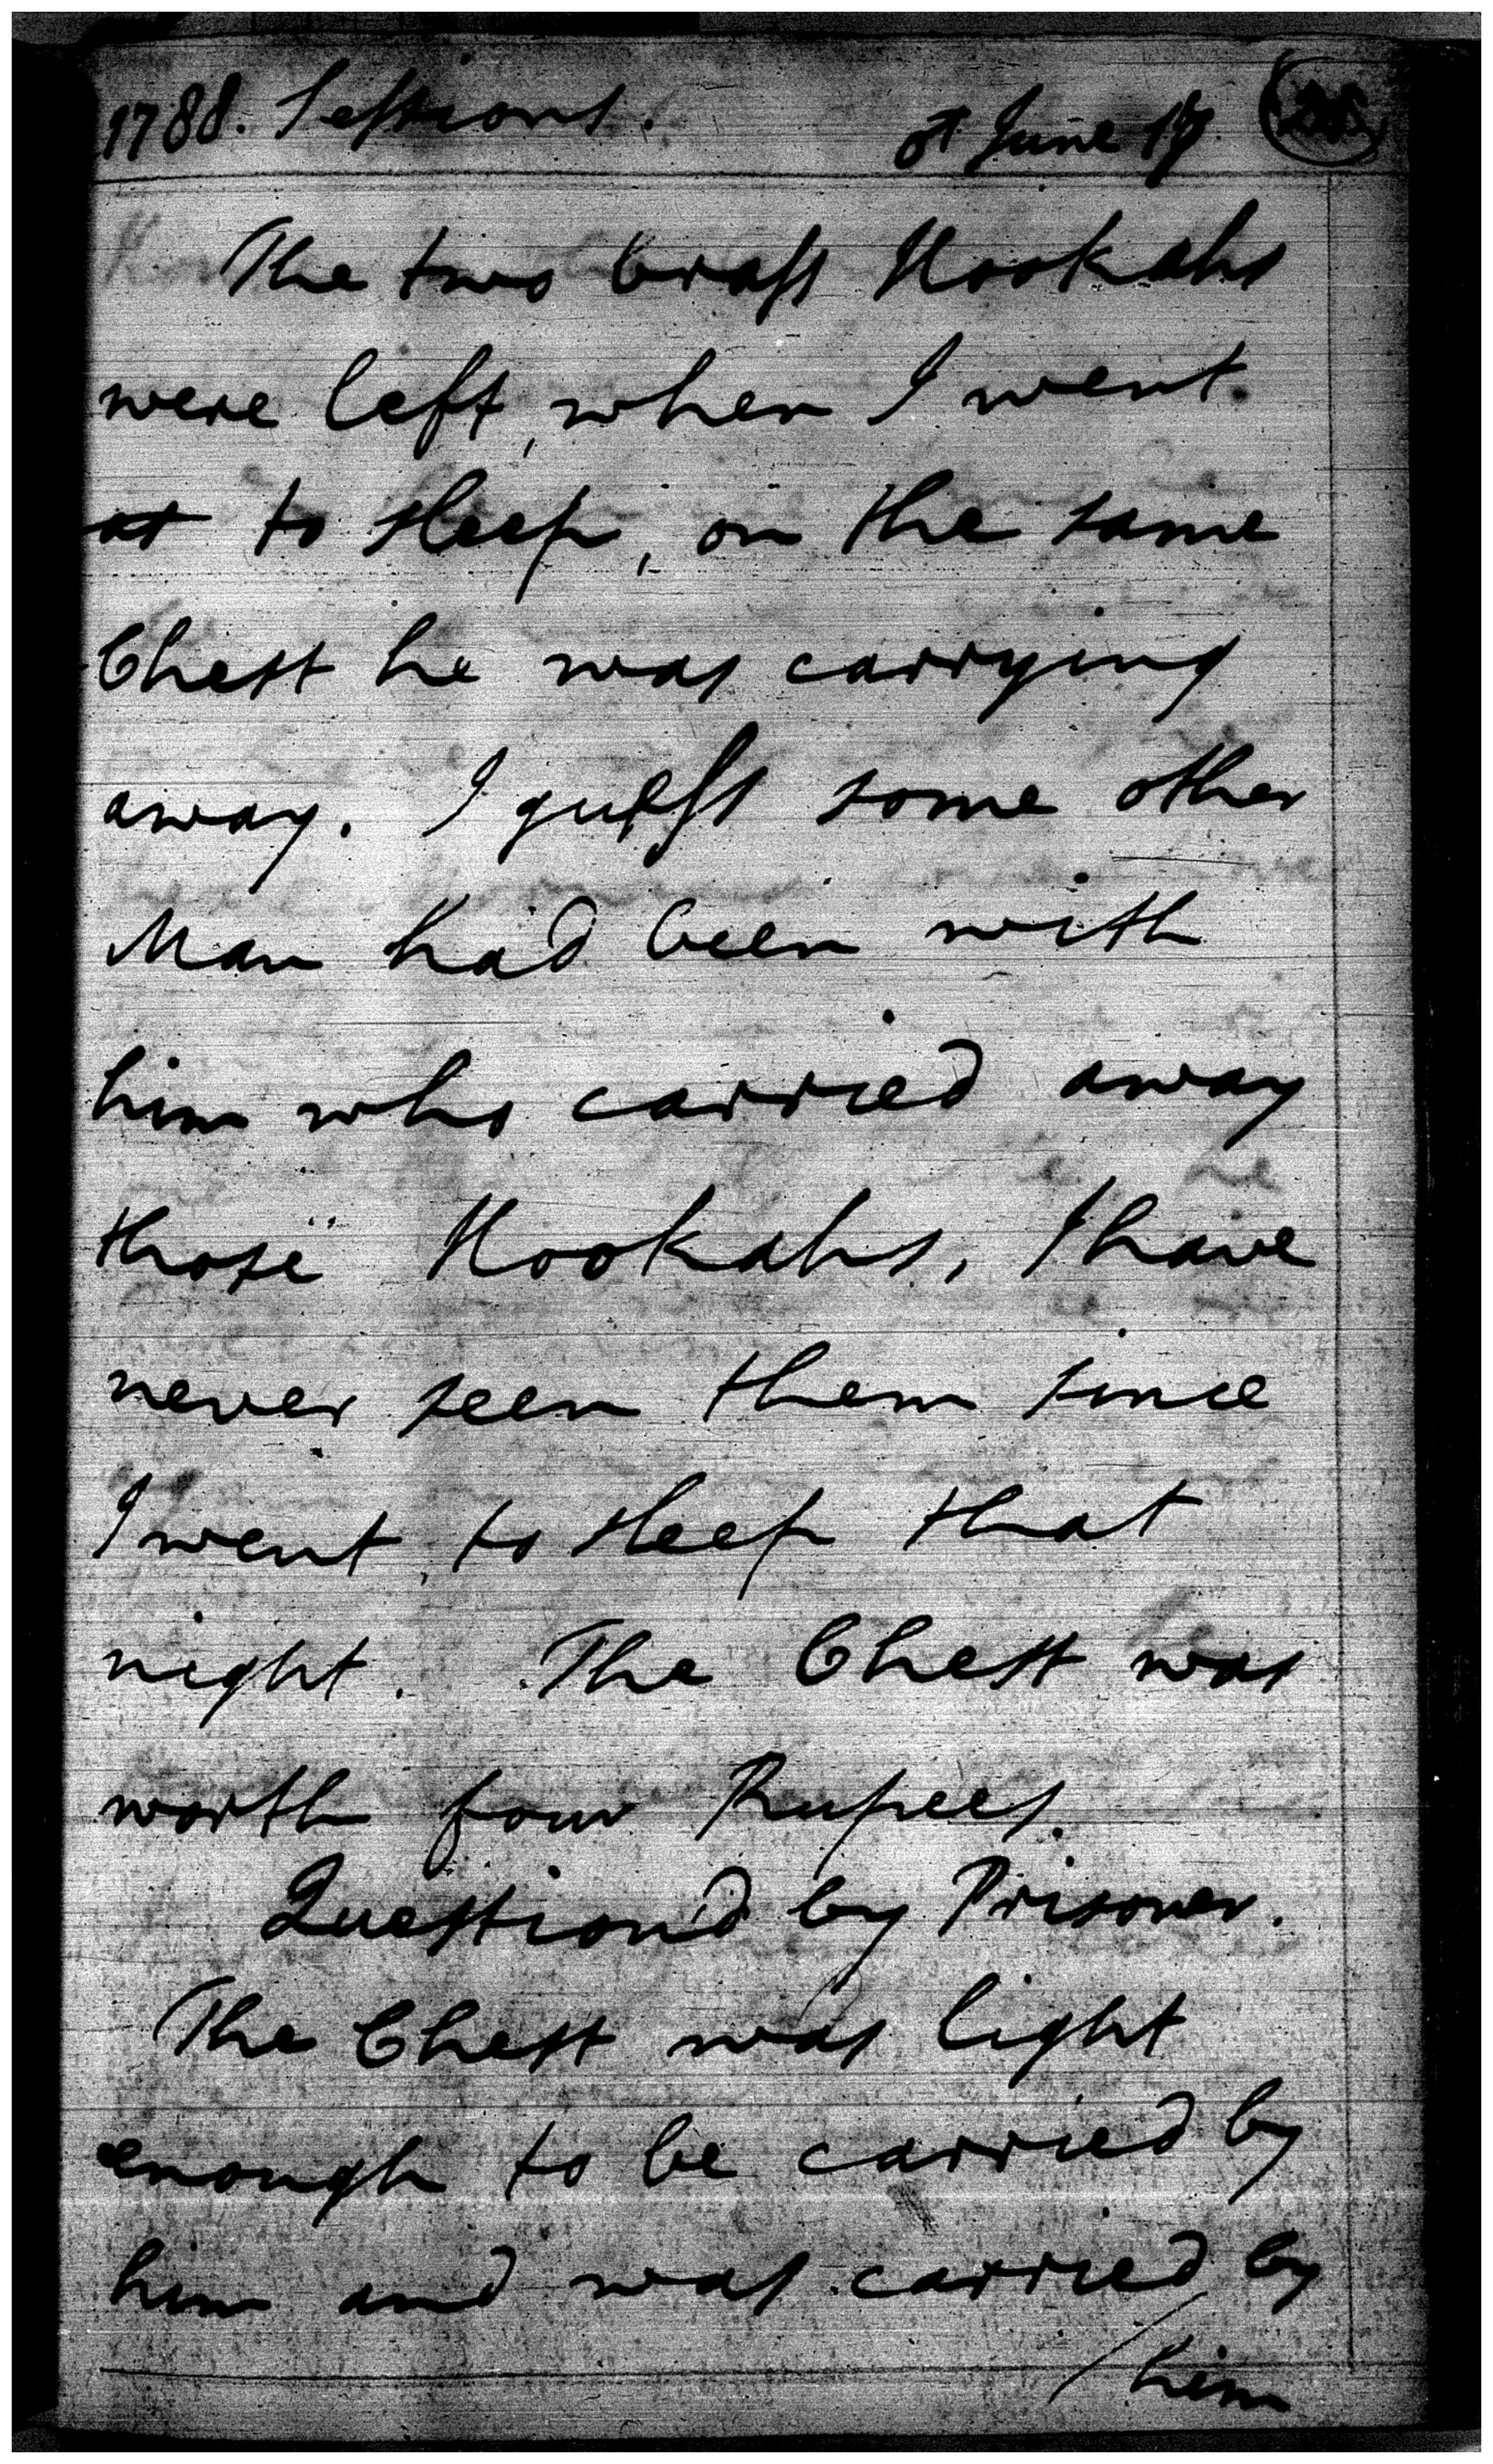 1788. Sessions. June 17
The two brass Hookahs
were left, when I went
at to sleep, on the same
Chest he was carrying
away. I guess some other
Man had been with
him who carried away
those Hookahs, I have
never seen them since
I went to sleep that
night. The Chest was
worth four Rupees.
Question'd by Prisoner.
The Chest was light
enough to be carried by
him and was carried by
/ him